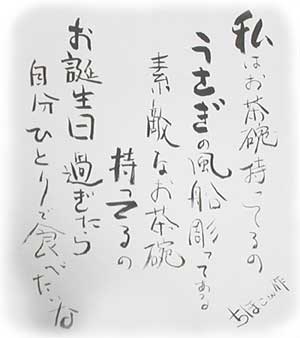 私はお茶碗持ってるの
うさぎの風船彫ってある
素敵なお茶碗
持ってるの
お誕生日過ぎたら
自分ひとりで食べたいな